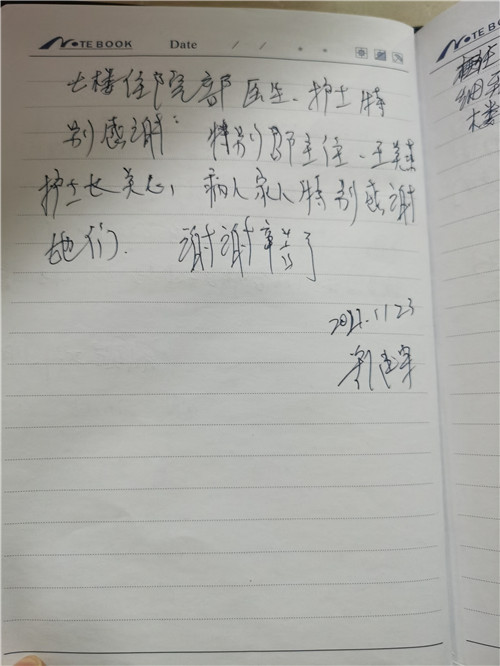 NOTEBOOK Date / /
七楼住院部医生、护士特
别感谢: 特别邵主任、王
护士长关心, 病人家人特别感谢
她们. 谢谢辛苦了
11 23
NOTEBO
楼